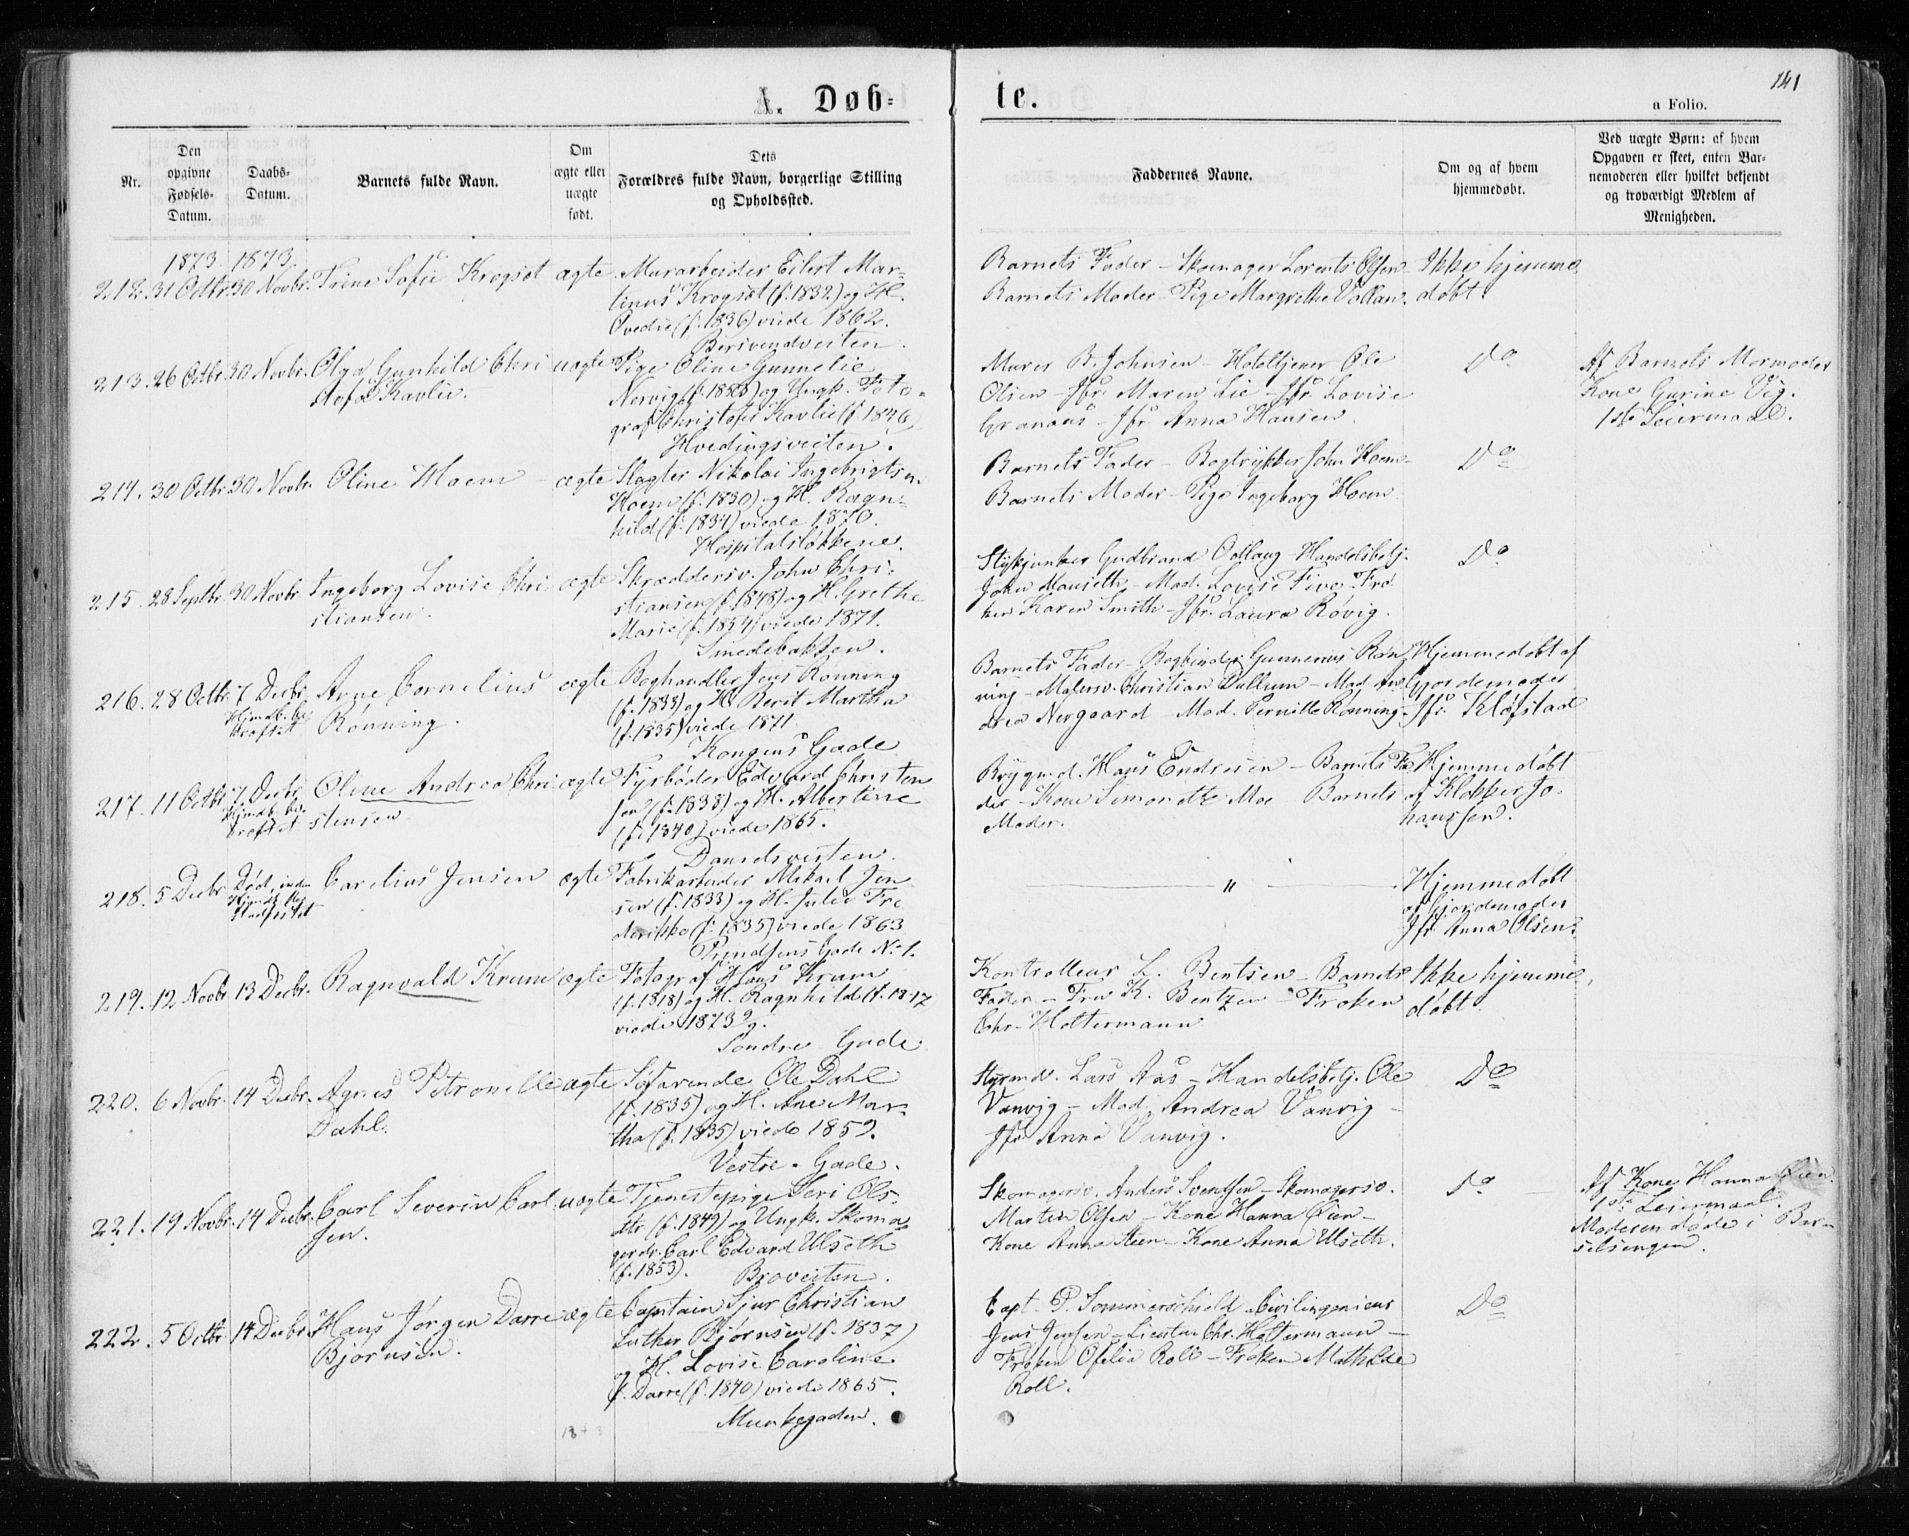 141
A. Døb-
te.
a Folio.
Nr.
Den opgivne Fødsels-Datum.
Daabs-Datum.
Barnets fulde Navn.
Om ægte eller uægte født.
Dets Forældres fulde Navn, borgerlige Stilling og Opholdssted.
Faddernes Navne.
Om og af hvem hjemmedøbt.
Ved uægte Børn: af hvem Opgaven er skeet, enten Barnemoderen eller hvilket bekjendt og troværdigt Medlem af Menigheden.
1873. 1873.
212. 31 Octbr. 30 Novbr. Trine Sofie Krogsøt ægte Murarbeider Eilert Mar-
tinus Krogsøt (f. 1832) og H.
(f. 1836) viede 1862.
Barnets Fader - Skomager Lorents Olsen - Ikke hjemme
Barnets Moder - Pige Margrethe døbt.
213. 26 Octbr. 30 Novbr. Olga Gunhild Chri uægte Pige Oline Gunnelie
stofa Kavlie.
og Ungk. Foto-
graf Christofer Kavlie (f. 1846)
Hvedingsveiten.
Murer B. Johnsen - Hoteltjener Ole
Olsen - Jfr. Maren Lie - Jfr. Lovise
Granaas - Jfr. Anna Hansen.
Do
Af Barnets Mormoder
Kone Gurine Vig.
1ste Leiermaal.
214. 30 Octbr. 30 Novbr. Oline Hoem - ægte Slagter Nikolai Ingebrigtsen
Hoem (f. 1830) og H. Ragn-
hild (f. 1834) viede 1870.
Hospitalsløkkene.
Barnets Fader - Bogtrykker John Hoem-
Barnets Moder - Pige Ingeborg Hoem
Do
215. 28 Septbr. 30 Novbr. Ingeborg Lovise Chri- ægte Skræddersv. John Chri-
stiansen.
stiansen (f. 1848) og H. Grethe
Marie (f. 1854) viede 1871.
Smedebakken.
Stykjunker Gudbrand - Handelsbetj.
John - Mad. Lovise - Frø
ken Karen Smith - Jfr. Laura Røvig.
Do
216. 28 Octbr. 7 Decbr. Arne Cornelius ægte Boghandler Jens Rønning
Rønning.
(f. 1838) og H. Berit Martha
(f. 1835) viede 1871.
Kongens Gade
Barnets Fader - Bogbinder Gunnerius Røn
ning - Malersv. Christian Dullum - Mad. An
drea Nergaard - Mad. Pernille Rønning -
Hjemmedøbt af
Gjordemoder
Jfr. Kløfstad
217. 11 Octbr. 7 Decbr. Oline Andrea Chri ægte Fyrbøder Edvard Christen
stensen
sen (f. 1838) og H. Albertine
(f. 1840) viede 1865.
Danielsveiten.
Brygmd. Hans Endresen - Barnets Fa
der - Kone Simonette Moe - Barnets
Moder.
Hjemmedøbt
af Klokker Jo-
hanssen.
218. 5 Decbr. Død, inden Carelius Jensen ægte Fabrikarbeider Mikael Jen
sen (f. 1833) og H. Julie Fre
derikke (f. 1835) viede 1863
Prindsens Gade No 1.
"
Hjemmedøbt
af Gjordemoder
Jfr. Anna Olsen.
219. 12 Novbr. 13 Decbr. Ragnvald Krum ægte Fotograf Hans Krum
(f. 1818) og H. Ragnhild (f. 1847
viede 1873.
Søndre Gade
Kontrolleur L. Bentsen - Barnets
Fader - Fru K. Bentzen - Frøken
Chr. Holtermann
Ikke hjemme
døbt.
220. 6 Novbr. 14 Decbr. Agnes Petronelle ægte Søfarende Ole Dahl
Dahl.
(f. 1835) og H. Ane Mar-
tha (f. 1835) viede 1859.
Vestre Gade.
Styrmd. Lars Aas - Handelsbetj. Ole
Vanvig - Mad. Andrea Vanvig -
Jfr. Anna Vanvig.
Do
221. 19 Novbr. 14 Decbr. Carl Severin Carl- uægte Tjenestepige Seri Ols-
sen.
dtr. (f. 1849) og Ungk. Skoma-
gerdr. Carl Edvard Ulseth
(f. 1853).
Broveiten.
Skomagersv. Anders Svendsen - Skomagersv.
Martin Olsen - Kone Hanna Øien -
Kone Anna Steen - Kone Anna Ulseth.
Do
Af Kone Hanna Øien.
1ste Leiermaal.
Moderen døde i Bar-
selsengen.
222. 5 Octbr. 14 Decbr. Hans Jørgen Darre ægte Captain Sjur Christian
Bjørnsen.
Luther Bjørnsen (f. 1837)
og H. Lovise Caroline
f. Darre (f. 1840) viede 1865.
Munkegaden.
Capt. P. Sommerschield - Civilingenieur
Jens Jensen - Lieutn. Chr. Holtermann -
Frøken Ofelia Roll - Frøken Mathilde
Roll.
Do